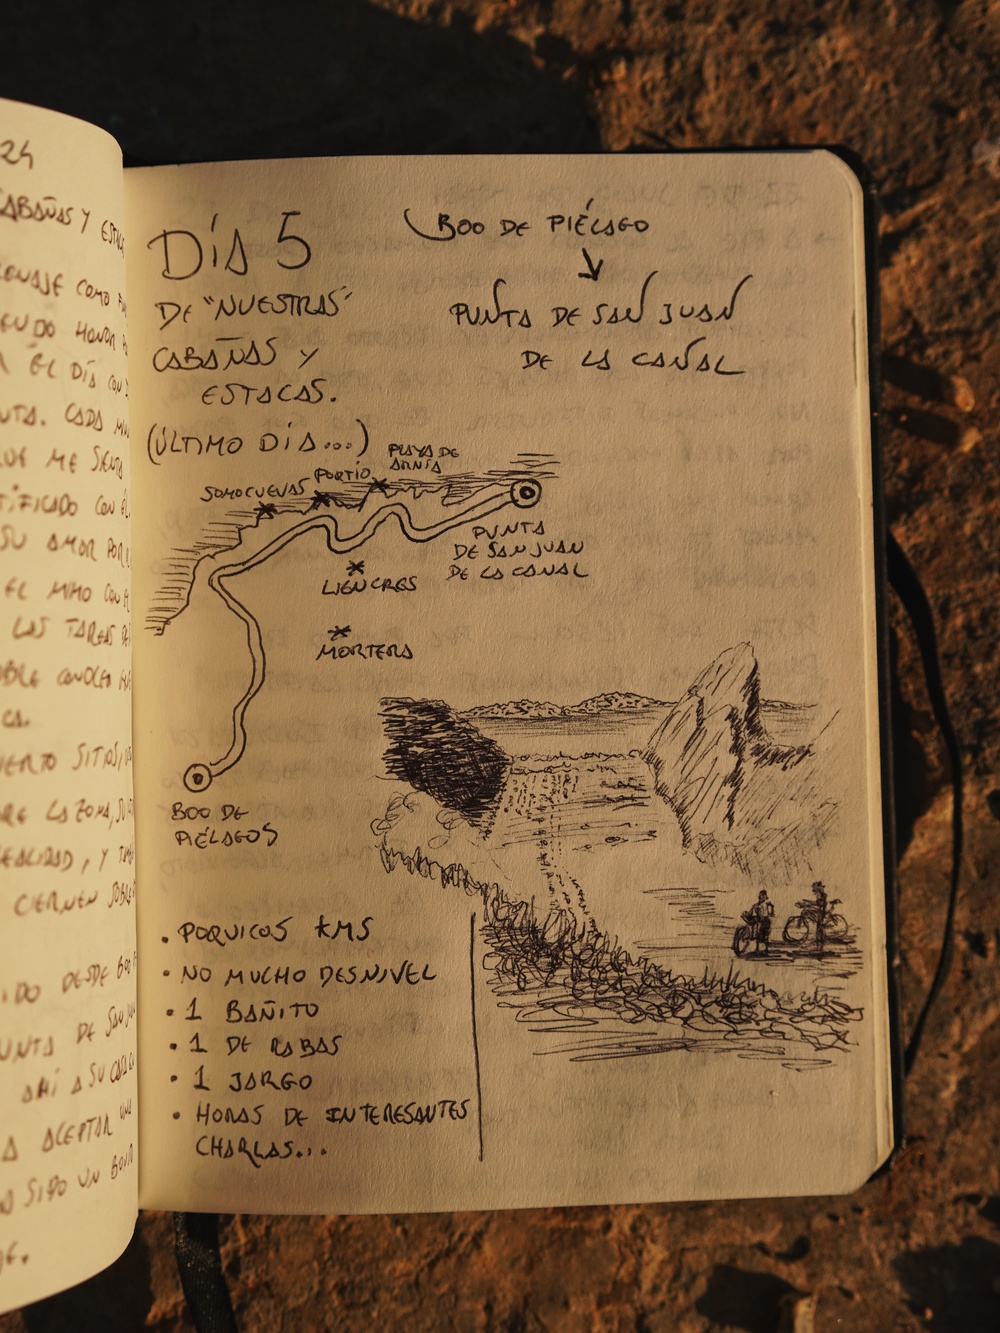 24
CABAÑAS Y
COMO
HONOR
ÉL DÍA CON
CADA
QUE ME
CON
SU AMOR POR
EL MIMO CON
LAS TAREAS
SITIOS,
LA ZONA, SU
REALIDAD, Y
CIERNEN SOBRE
DESDE BOO
PUNTA DE SAN JUAN
AHÍ A SU CASA
A ACEPTAR UNA
SIDO UN
DÍA 5
DE "NUESTRAS"
CABAÑAS Y
ESTACAS.
(ÚLTIMO DÍA...)
BOO DE PIÉLAGO
PUNTA DE SAN JUAN
DE LA CANAL
PLAYA DE
ARNÍA
PORTIO
SOMOCUEVAS
PUNTA
DE SAN JUAN
DE LA CANAL
LIENCRES
MORTERA
BOO DE
PIÉLAGOS
• POQUICOS KMS
• NO MUCHO DESNIVEL
• 1 BAÑITO
• 1 DE RABAS
• 1 JARGO
• HORAS DE INTERESANTES
CHARLAS...